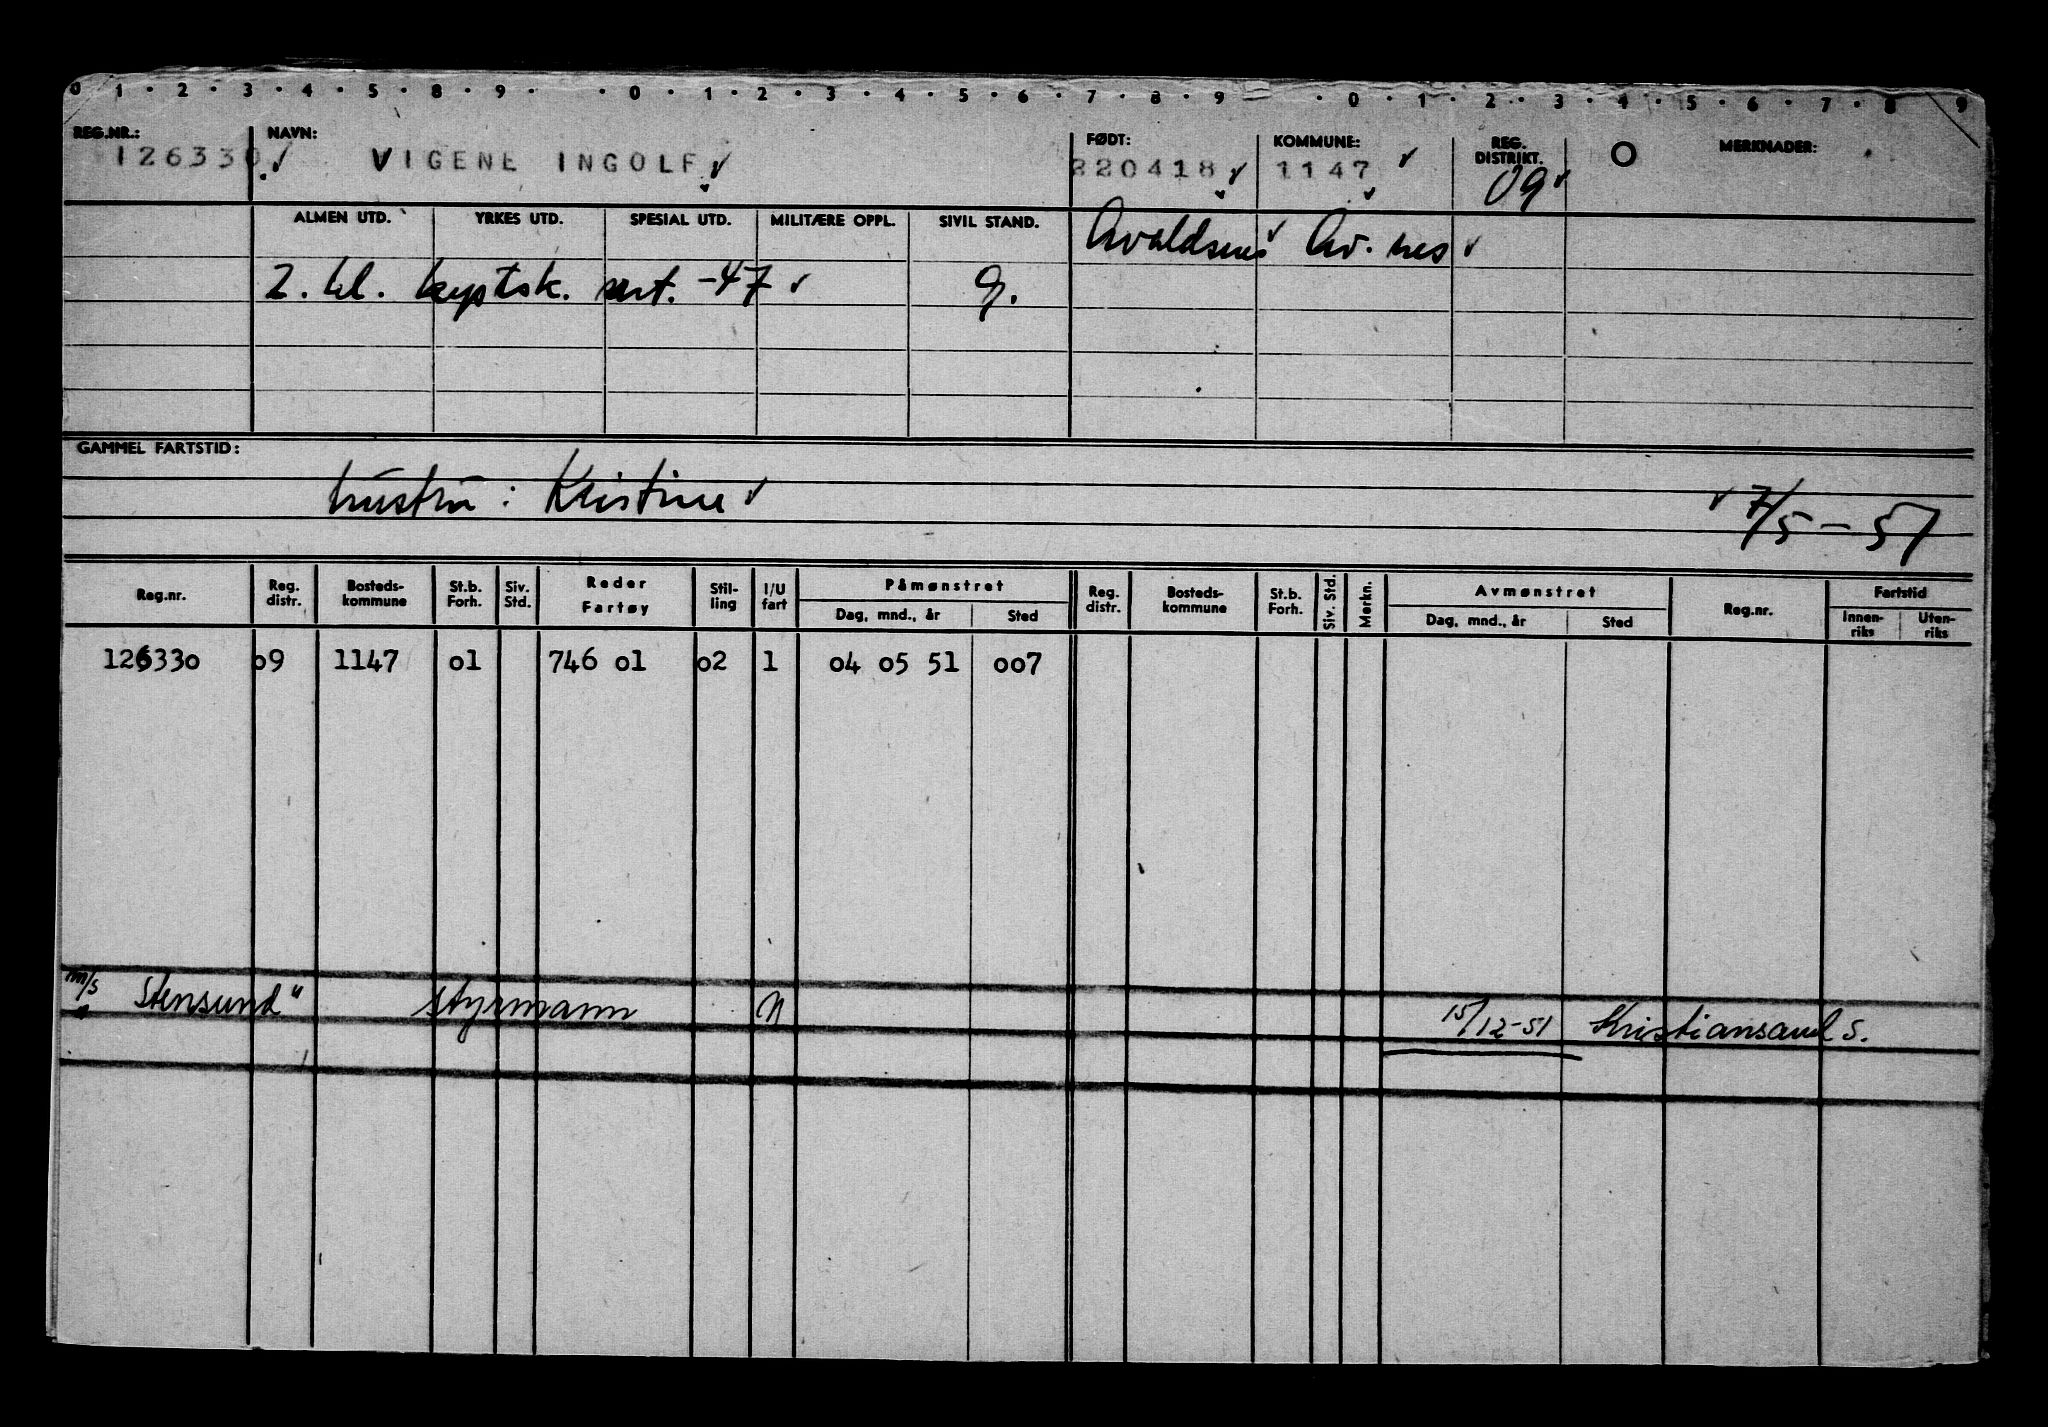 0 1 · 2 · 3 · 4 · 5 · 8 · 9 · · 0 · 1 · 2 · 3 · 4 · 5 · 6 · 7 · 8 · 9 · 0 · 1 · 2 · 3 · 4 · 5 · 6 · 7 · 8 9
REG.NR.: NAVN: FØDT: KOMMUNE: REG. DISTRIKT. O MERKNADER:
126330 VIGENE INGOLF 220418 1147 09
ALMEN UTD. YRKES UTD. SPESIAL UTD. MILITÆRE OPPL. SIVIL STAND. Avaldsnes Av. nes
2. kl. kystsk. sert. -47 g.
GAMMEL FARTSTID:
hustru: Kristine 7/5 - 57
Reg.nr. Reg. distr. Bosteds-kommune St.b. Forh. Siv. Std. Reder Fartøy Stil-ling I/U fart Påmønstret Dag, mnd., år Sted Reg. distr. Bosteds-kommune St.b. Forh. Siv. Std. Merkn. Avmønstret Dag, mnd., år Sted Reg.nr. Fartstid Innen-riks Uten-riks
126330 09 1147 01 746 01 02 1 04 05 51 007
m/s "Stensund" styrmann U 15/12-51 Kristiansand S.